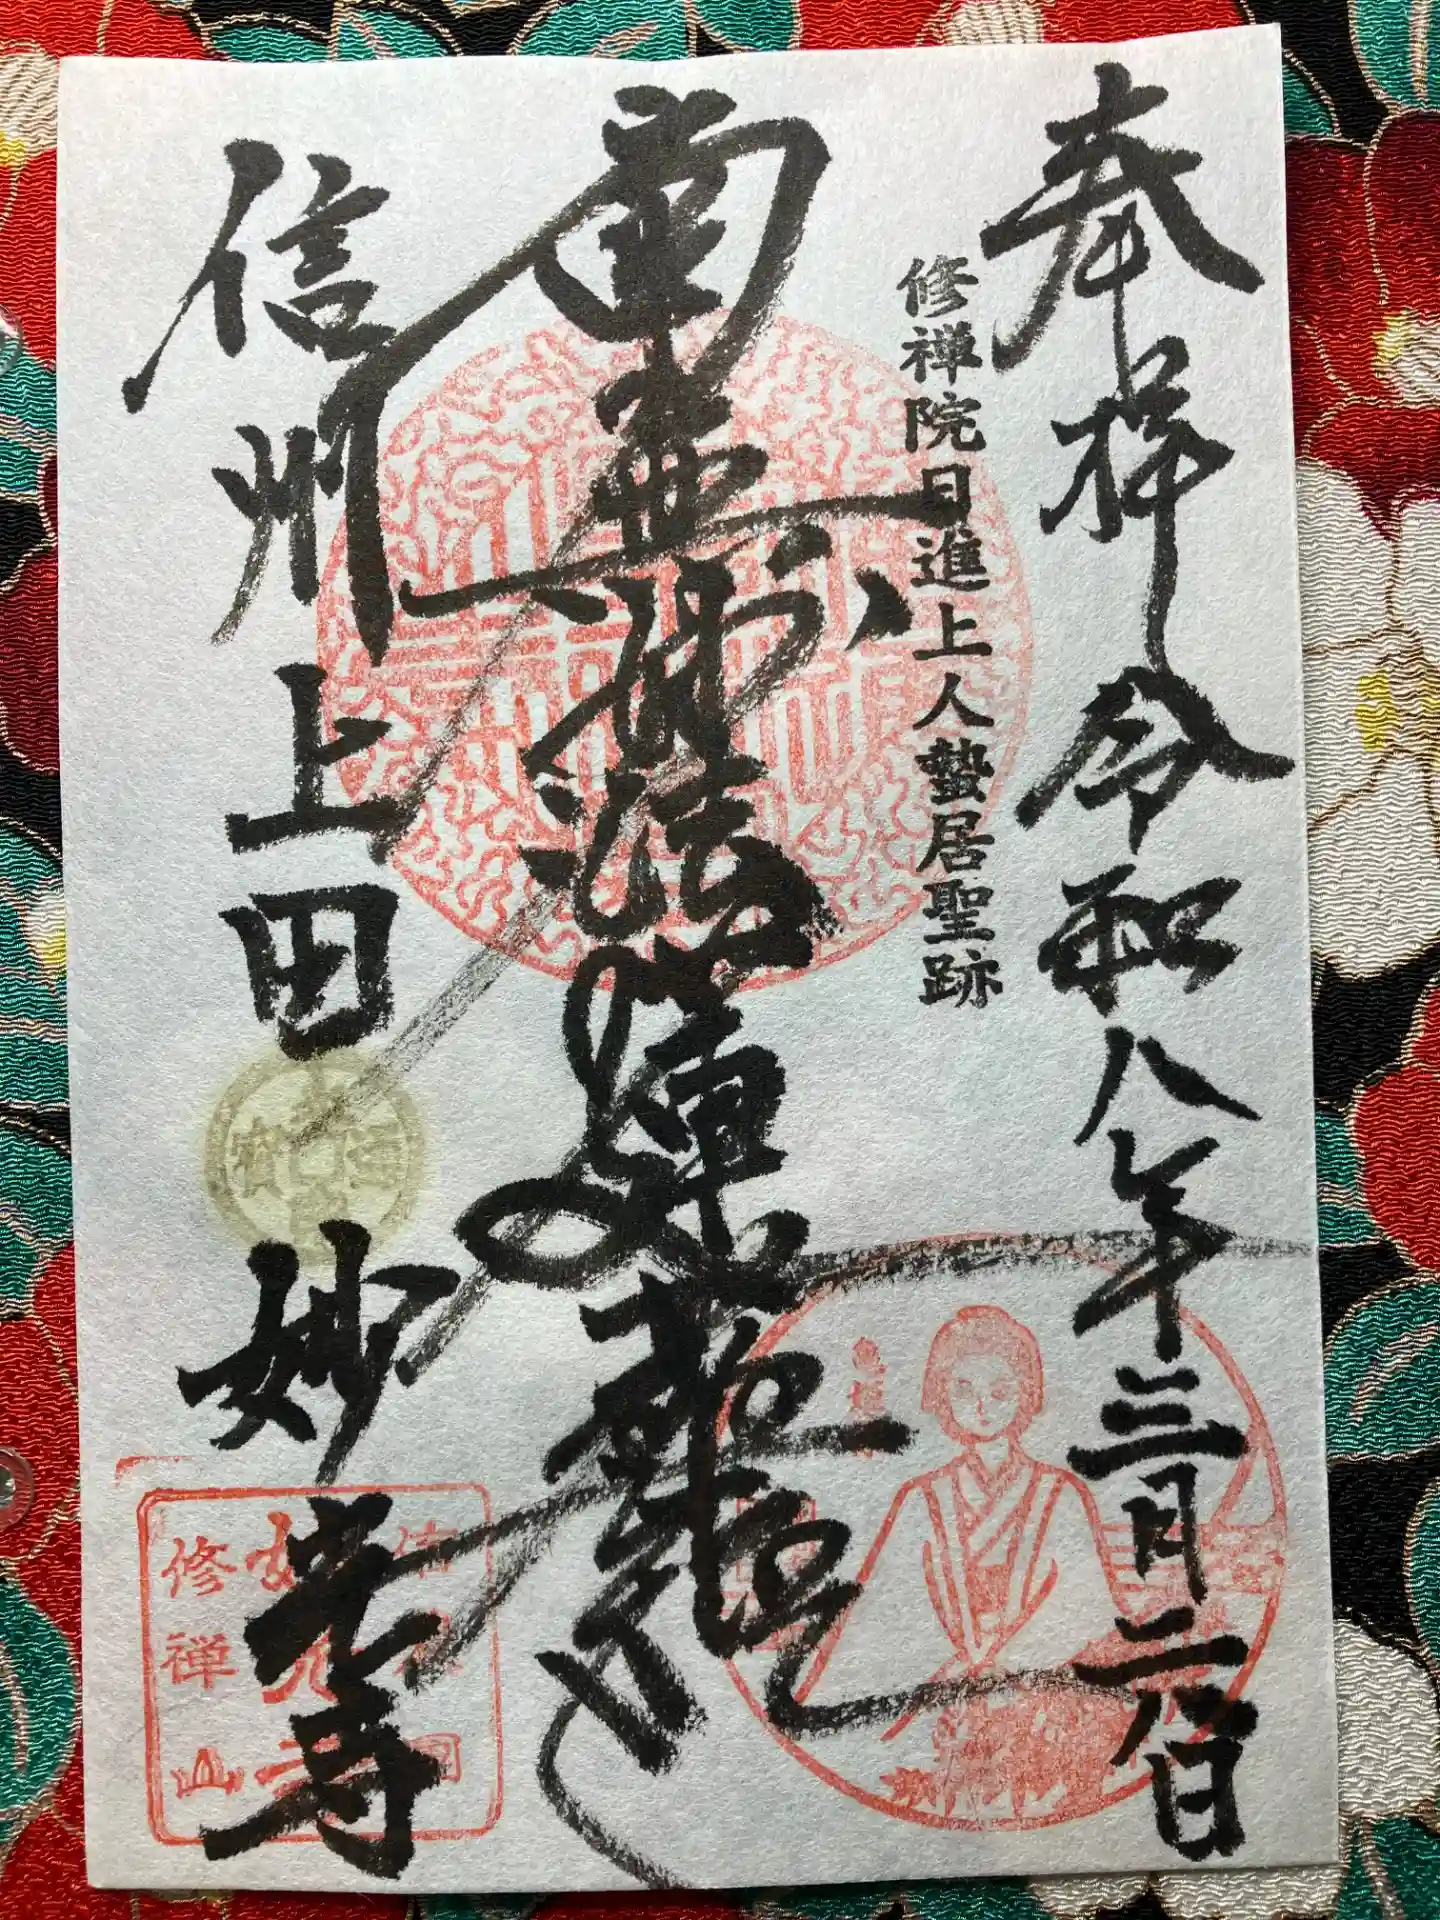 奉拝 令和八年三月二八日
修禅院日進上人蟄居聖跡
南無妙法蓮華経
信州上田 妙光寺
修禅山